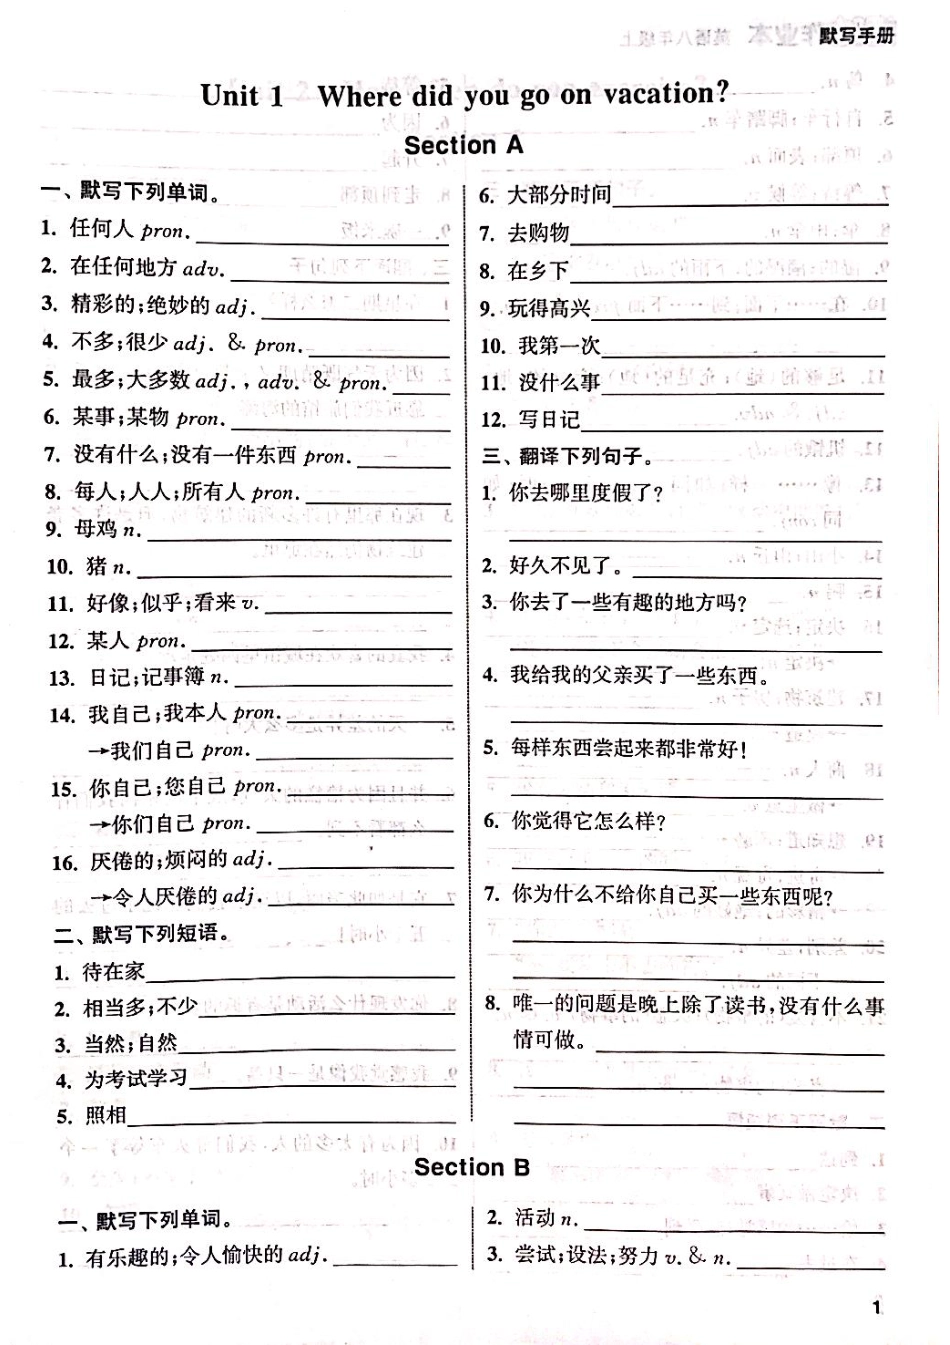 默写手册
Unit 1 Where did you go on vacation?
Section A
一、默写下列单词。
1. 任何人 pron.
2. 在任何地方 adv.
3. 精彩的;绝妙的 adj.
4. 不多;很少 adj. & pron.
5. 最多;大多数 adj., adv. & pron.
6. 某事;某物 pron.
7. 没有什么;没有一件东西 pron.
8. 每人;人人;所有人 pron.
9. 母鸡 n.
10. 猪 n.
11. 好像;似乎;看来 v.
12. 某人 pron.
13. 日记;记事簿 n.
14. 我自己;我本人 pron.
→我们自己 pron.
15. 你自己;您自己 pron.
→你们自己 pron.
16. 厌倦的;烦闷的 adj.
→令人厌倦的 adj.
二、默写下列短语。
1. 待在家
2. 相当多;不少
3. 当然;自然
4. 为考试学习
5. 照相
6. 大部分时间
7. 去购物
8. 在乡下
9. 玩得高兴
10. 我第一次
11. 没什么事
12. 写日记
三、翻译下列句子。
1. 你去哪里度假了?
2. 好久不见了。
3. 你去了一些有趣的地方吗?
4. 我给我的父亲买了一些东西。
5. 每样东西尝起来都非常好!
6. 你觉得它怎么样?
7. 你为什么不给你自己买一些东西呢?
8. 唯一的问题是晚上除了读书,没有什么事
情可做。
Section B
一、默写下列单词。
1. 有乐趣的;令人愉快的 adj.
2. 活动 n.
3. 尝试;设法;努力 v. & n.
1